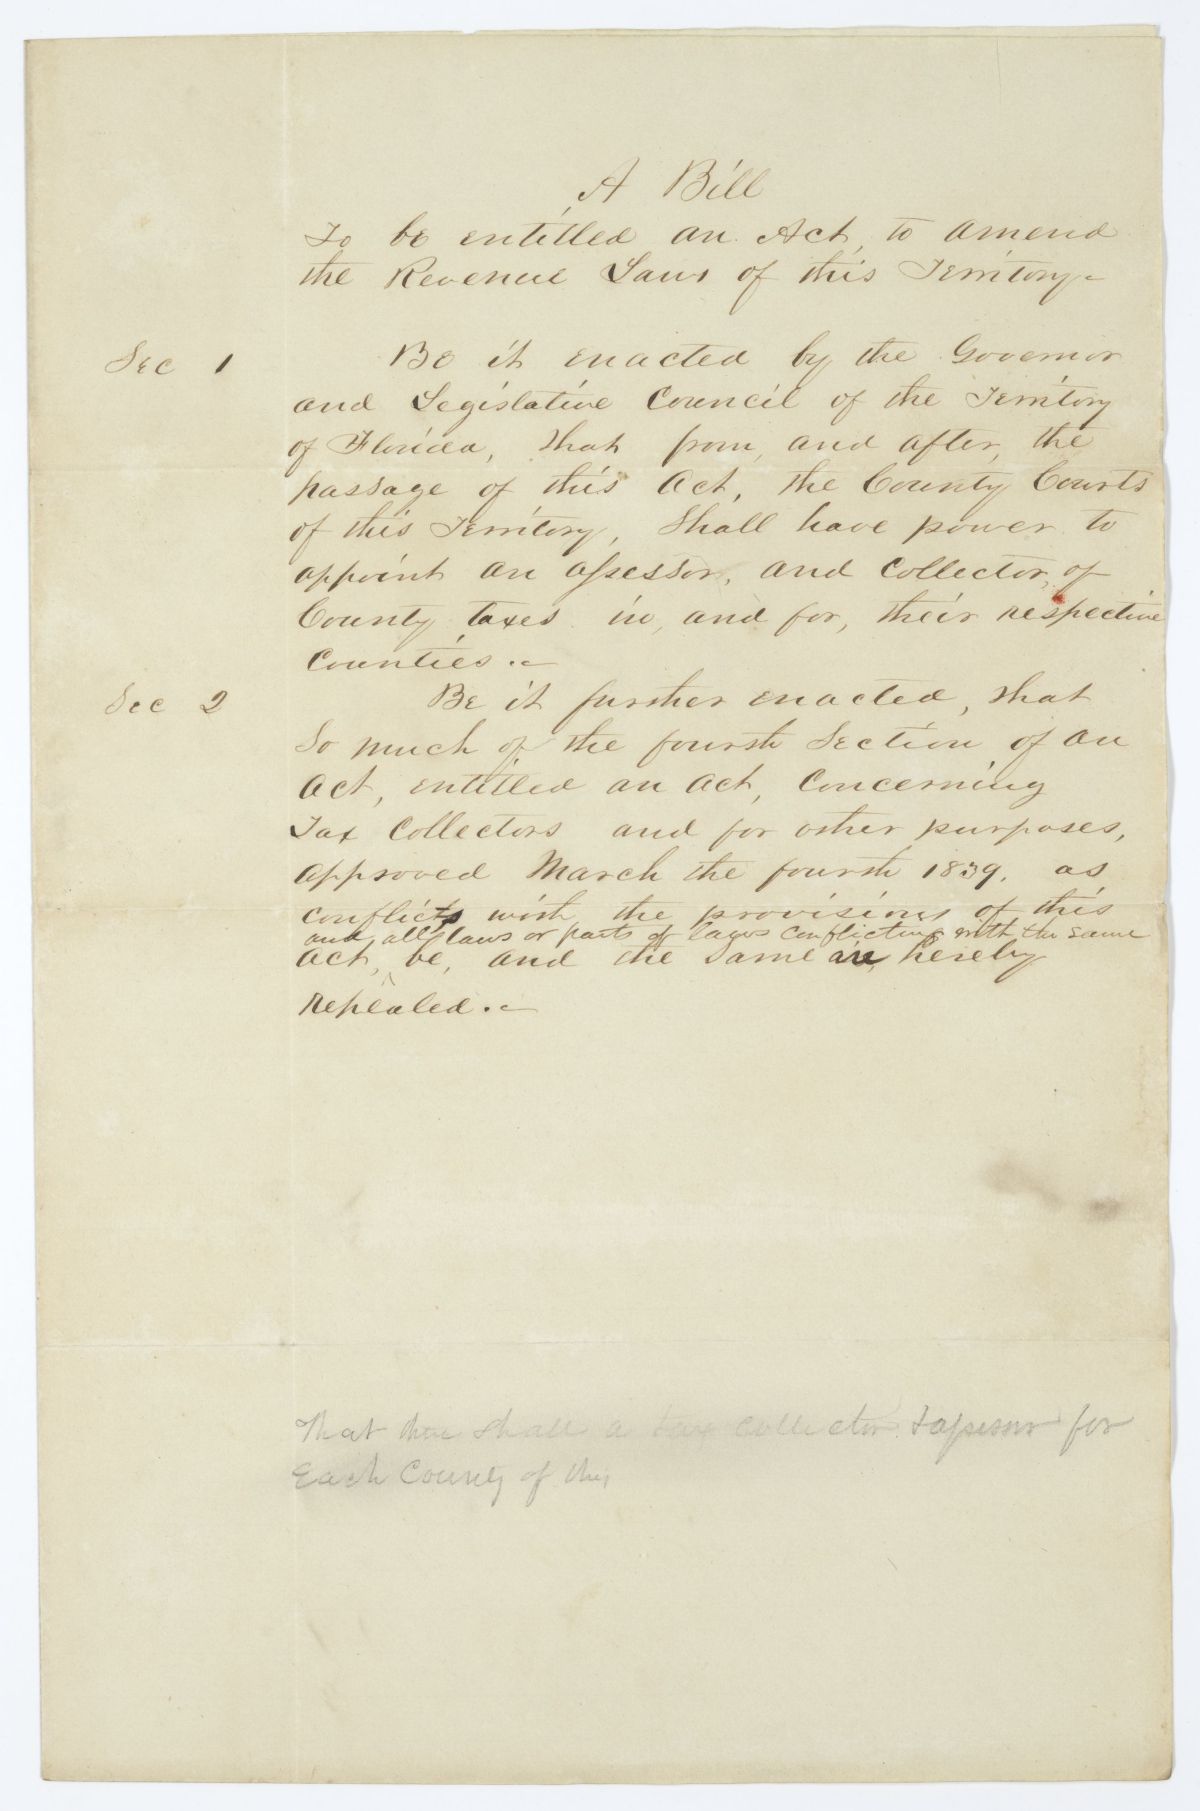 A Bill
To be entitled an Act, to amend
the Revenue Laws of this Territory.
Sec 1 Be it enacted by the Governor
and Legislative Council of the Territory
of Florida, that from, and after, the
passage of this Act, the County Courts
of this Territory, shall have power to
appoint an assessor, and Collector, of
County taxes in, and for, their respective
Counties.
Sec 2 Be it further enacted, that
so much of the fourth Section of an
act, entitled an act, Concerning
Tax Collectors and for other purposes,
approved March the fourth 1839. as
conflicts with the provisions of this
and all laws or parts of laws conflicting with the same
act, be, and the same are, hereby
repealed.
That there shall a tax collector & assessor for
Each County of this